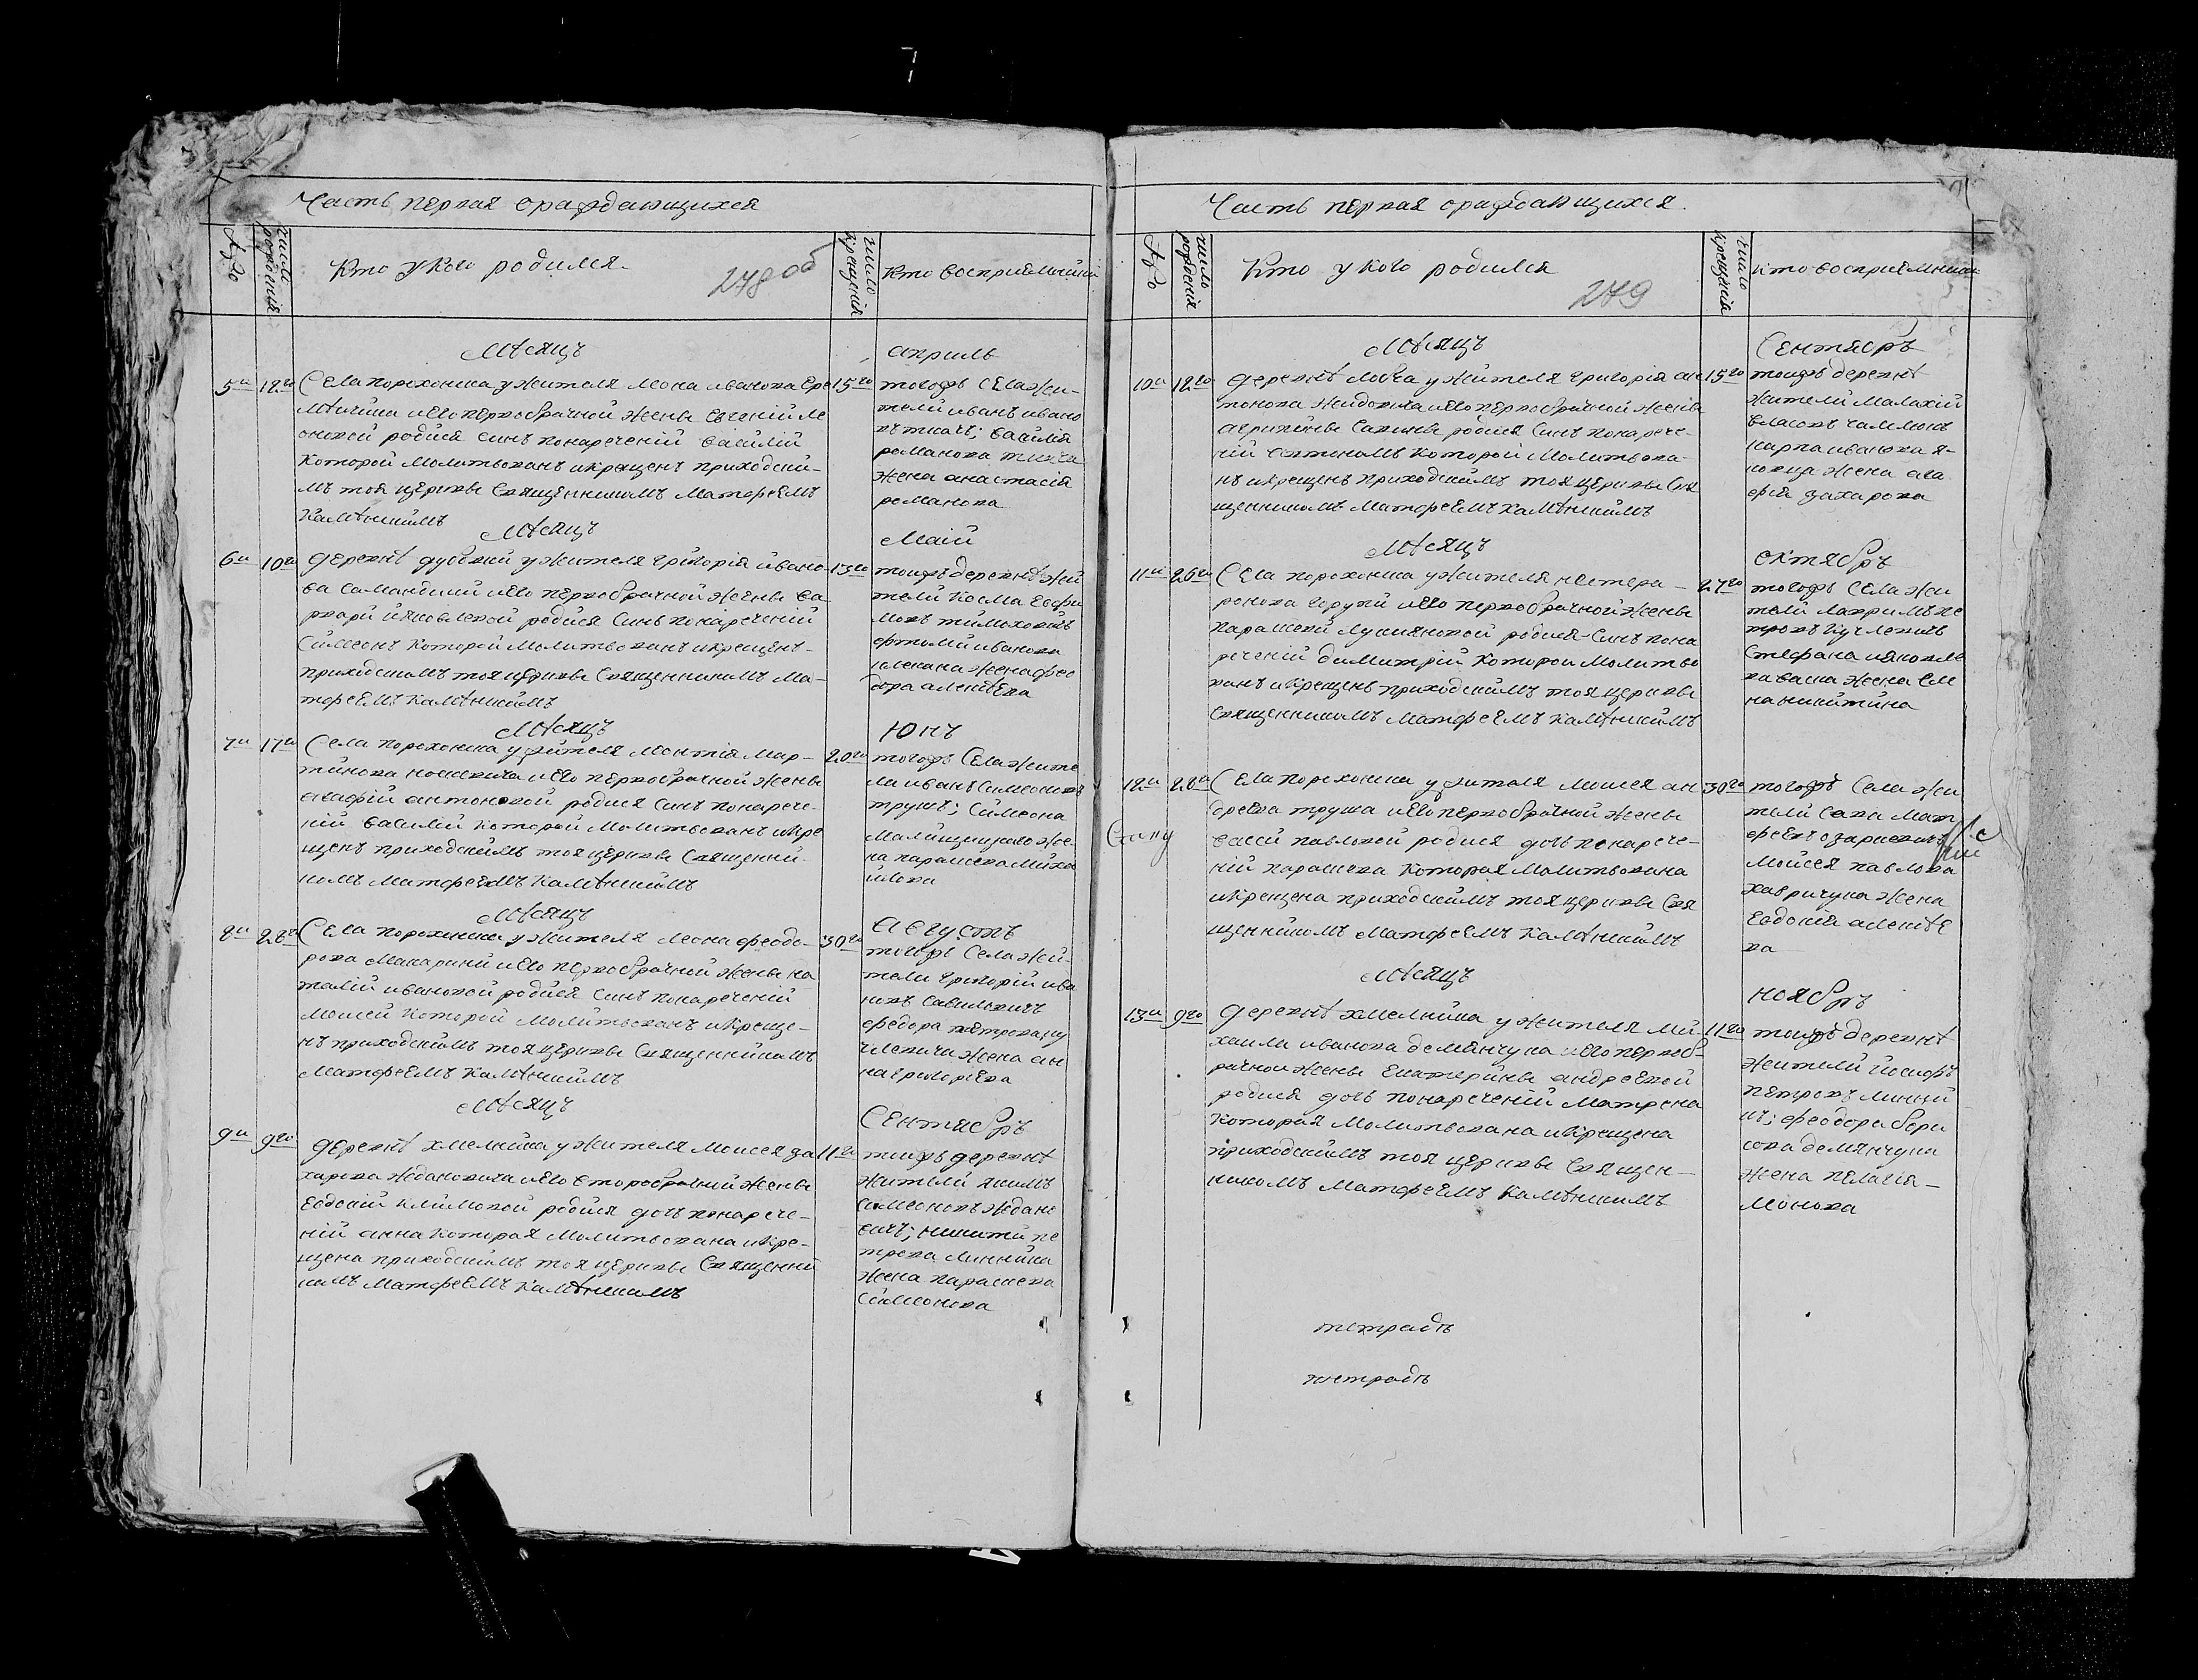 Часть первая ораждающихся
число рождения
Кто укого родился
278об
число крещения
Кто восприемники
Мѣсяцъ
априль
5и 12го Села порохонска ужителя Леона иванова Ере
мѣичика иего первобрачной жены Евгений ле
оновой родися синъ понаречений василий
которой Молитвованъ икрещенъ приходски-
мъ тоя церкви Священникомъ Матфеемъ
Калѣнкимъ
15го тогожъ Села жи-
тели иванъ ивано
въ ткачъ; василия
романова ткача
жена анастасия
романова
Мѣсяцъ
Маий
6и 10го деревнѣ дубокий ужителя григория ивано
ва иего первобрачной жены ва
рвари ияковлевой родися Синъ понаречений
Симеонъ которой Молитвованъ икрещенъ-
приходскимъ тоя церкви Священникомъ Ма-
тфеемъ Калѣнкимъ
13го тоижъ деревнѣ жи
тели косма Евфи
мовъ
иванова
жена фео
дора алексѣева
Мѣсяцъ
Юнъ
7и 17го Села порохонска ужителя Леонтия Мар-
тинова иего первобрачной жены
агафий антоновой родися Синъ понарече-
ний василий которой Молитвованъ икре
щенъ приходскимъ тоя церкви Священни-
комъ Матфеемъ Калѣнкимъ
20го тогожъ Села жите
ли иванъ Симеоновъ
трушъ; Симеона
жe-
на параскева Михаи
лова
Мѣсяцъ
Августъ
8и 28го Села порохонска ужителя Леона феодо-
рова Макарини иего первобрачной жены на
талий ивановой родися Синъ понаречений
Моисей которой Молитвованъ икреще-
нъ приходскимъ тоя церкви Священникомъ
Матфеемъ Калѣнкимъ
30го тогожъ Села жи-
тели григорий ива
новъ Савилковичъ
федора петрова ку
члевича жена ан
на григориева
Мѣсяцъ
Сентябръ
9и 9го деревнѣ хмелника ужителя Моисея за
харова ждановича иего второбрачной жены
Евдокий климовой родися дочь понарече-
ний анна которая Молитвована икре-
щена приходскимъ тоя церкви Священни
комъ Матфеемъ Калѣнкимъ
11го тоижъ деревнѣ
жители якимъ
Симеоновъ ждано
вичъ; никити пе
трова линника
жена параскева
Симеонова
Часть первая ораждающихся.
число рождения
Кто укого родился
279
число крещения
Кто восприемники
Мѣсяцъ
Сентябръ
10и 12го деревнѣ ужителя григория ан
тонова жидовича иего первобрачной жены
агрипины Савины родися Синъ понарече-
ний которой Молитвова-
нъ икрещенъ приходскимъ тоя церкви Свя
щенникомъ Матфеемъ Калѣнкимъ
15го тоижъ деревнѣ
жители Малахий
власовъ
карпа иванова я-
новца жена ага
фия захарова
Мѣсяцъ
октябръ
11и 26го Села порохонска ужителя
иего первобрачной жены
Параскеви лукияновой родися Синъ пона
речений димитрий которой Молитво
ванъ икрещенъ приходскимъ тоя церкви
Священникомъ Матфеемъ Калѣнкимъ
27го тогожъ Села жи
тели пе
тровъ кучлевичъ
Стефана ияковле
ва жена Еле
на никитина
12и 28го Села порохонска ужителя Моисея ан
дреева труша иего первобрачной жены
васси павловой родися дочь понарече-
ний параскева которая Молитвована
икрещена приходскимъ тоя церкви Свя
щенникомъ Матфеемъ Калѣнкимъ
30го тогожъ Села жи
тели Сава Мат
феевъ
Моисея павлова
хавричука жена
Евдокия алексѣе
ва
Мѣсяцъ
ноябръ
13и 9го деревнѣ хмелника ужителя Ми-
хаила иванова демянчука иего первоб-
рачной жены Екатерины андреевой
родися дочь понаречений Матрена
которая Молитвована икрещена
приходскимъ тоя церкви Священ-
никомъ Матфеемъ Калѣнкимъ
11го тоижъ деревнѣ
жители иосифъ
петровъ линни
къ; феодора бори
сова демянчука
жена пелагия-
тетрадь
тетрадь